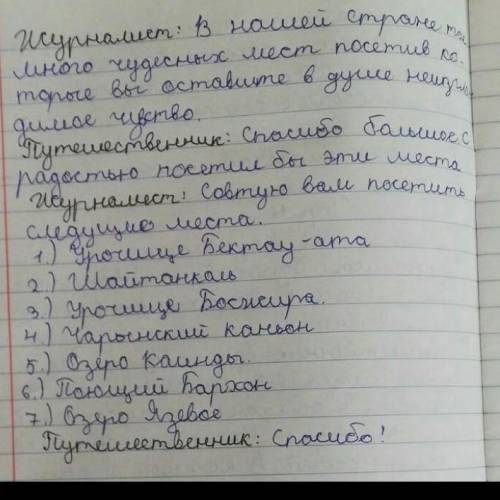 Журналист: В нашей стране так
много чудесных мест посетив ко-
торые вы оставите в душе
димое чувство.
Путешественник: Спасибо большое с
радостью посетил бы эти места
Журналист: Совтую вам посетить
следущие места.
1.) Урочище Бектау-ата
2.) Шайтанколь
3.) Урочище Босжира.
4.) Чарынский каньон
5.) Озеро Каинды.
6.) Поющий Бархон
7.) Озеро Язевое
Путешественник: Спасибо!